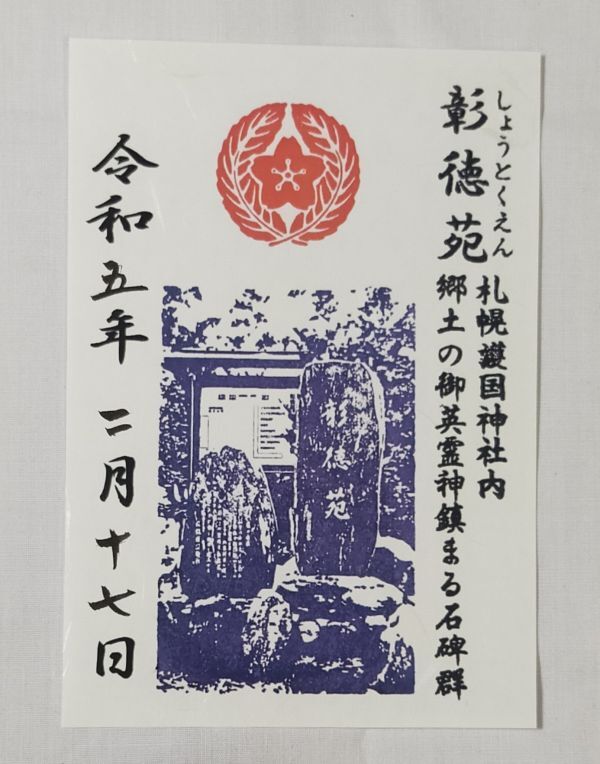 しょうとくえん
彰徳苑
札幌護国神社内
郷土の御英霊神鎮まる石碑群
彰徳苑
令和五年 二月十七日